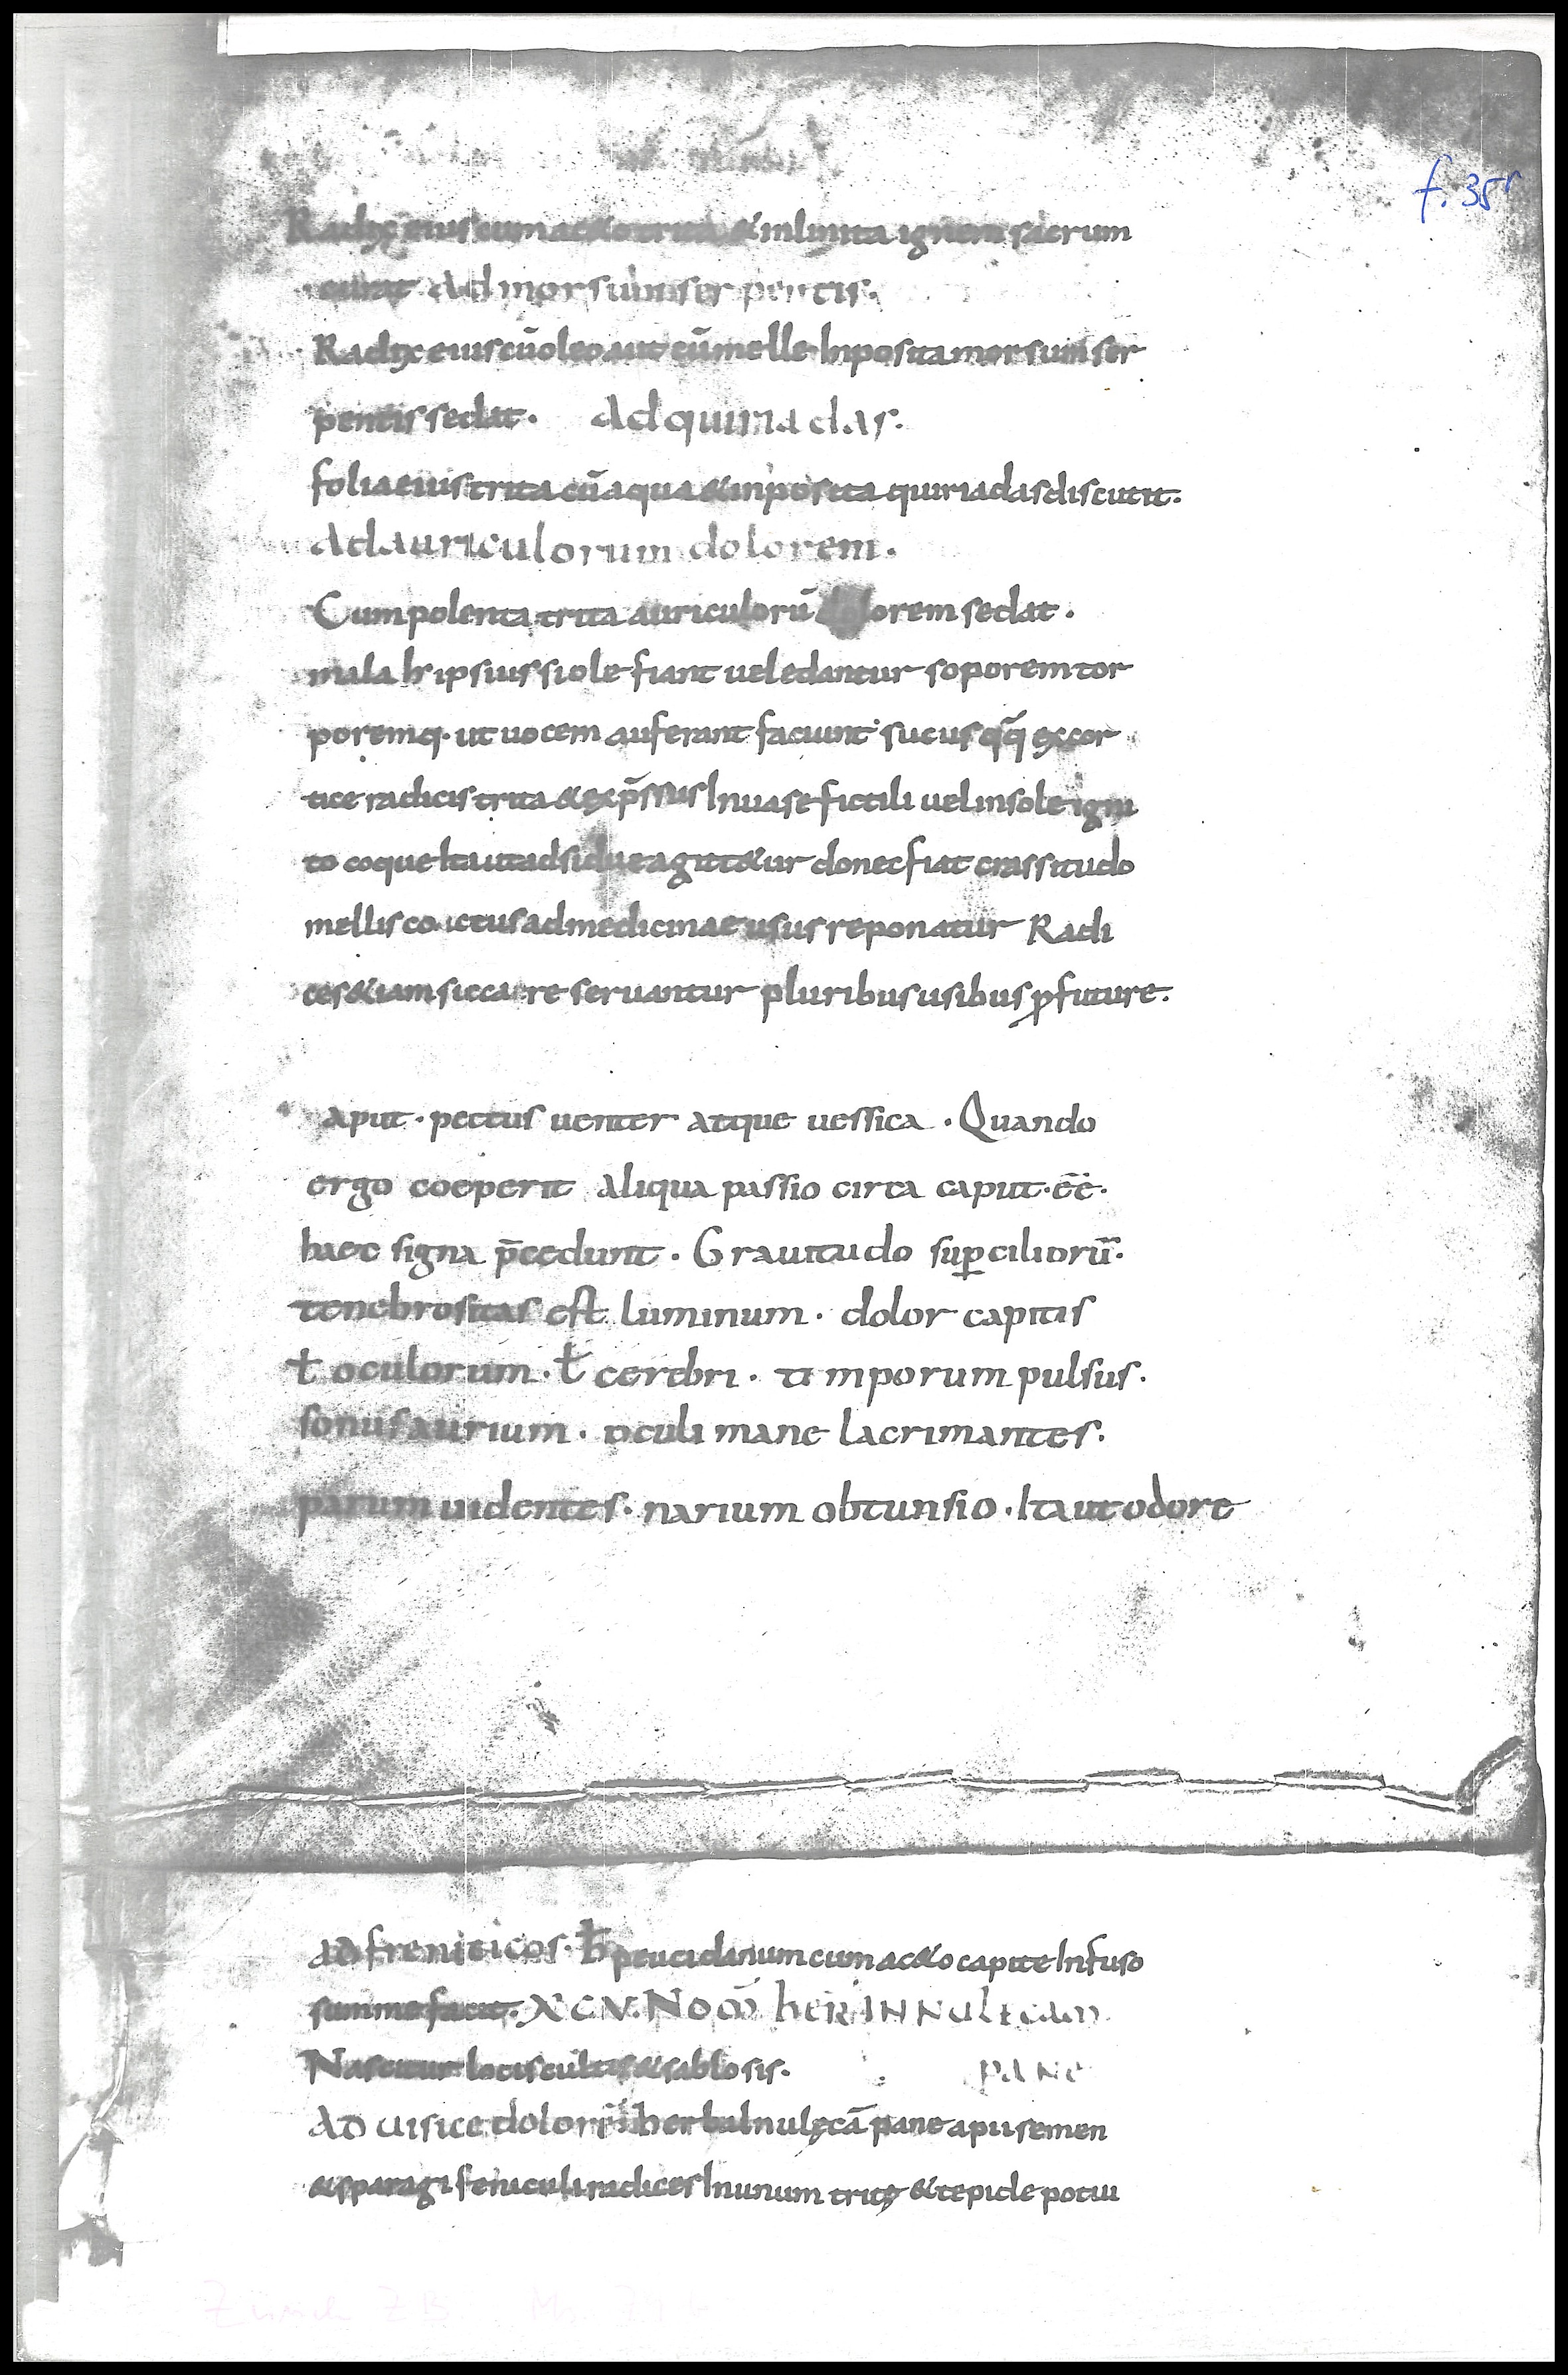 f. 35r
Radix eius cum aceto trita & inlinita ignem sacrum
curat Ad morsum serpentis.
Radix eius cū oleo aut cū melle Inposita morsum ser
pentis sedat. Ad quiriadas.
folia eius trita cū aqua & inposita quiriadas discutit.
Ad auriculorum dolorem.
Cum polenta trita auriculorū dolorem sedat.
mala ipsius si ole fiant uel edantur soporem tor
poremq. ut uocem auferant faciunt sucus qq̄ ex cor
tice radicis trita & exp̄ssus In uase fictili uel in sole igni
to coque Ita ut adsidue agitetur donec fiat crassitudo
mellis coctus ad medicinae usus reponatur Radi
ces & iam siccare seruantur pluribus usibus ꝓfuture.
aput. pectus uenter atque uessica. Quando
ergo coeperit aliqua passio circa caput. ēē.
haec signa p̄cedunt. Grauitudo suꝑciliorū.
tenebrositas est luminum. dolor capitis
ł oculorum. ł cerebri. timporum pulsus.
sonus aurium. oculi mane lacrimantes.
parum uidentes. narium obtunsio. Ita ut odore
ad freniticos. ħ peucidanum cum aceto capite Infuso
summe facit. XCV. Nom̄ her INNULECAM
Nascitur locis cultis & sablosis. PANE
AD uisice dolorē herba Innulęcā pane apii semen
& sparagi feniculi radices In unum tritę & tepide potui